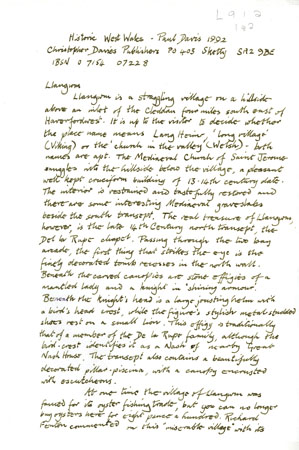 L912
Historic West Wales - Paul Davis 1992
Christopher Davies Publishers PO 403 Sketty SA2 9BE
IBSN 0 7154 07228
Llangwm
Llangwm is a straggling village on a hillside
above an inlet of the Cleddau four miles south east of
Haverfordwest. It is up to the visitor to decide whether
the place name means Lang Heim, 'long village'
(Viking) or the 'church in the valley' (Welsh) - both
names are apt. The Mediaeval Church of Saint Jerome
snuggles into the hillside below the village, a pleasant
well kept cruciform building of 13-14th century date.
The interior is restrained and tastefully restored and
there are some interesting Mediaeval graveslabs
beside the south transept. The real treasure of Llangwm,
however, is the late 14th Century north transept, the
De la Rupe chapel. Passing through the two bay
arcade, the first thing that strikes the eye is the
finely decorated tomb recesses in the north wall.
Beneath the carved canopies are stone effigies of a
mantled lady and a knight in 'shining armour'.
Beneath the Knight's head is a large jousting helm with
a bird's head crest, while the figure's stylish metal studded
shoes rest on a small lion. This effigy is traditionally
that of a member of the De la Rupe family, although the
bird-crest identifies it as a Nash of nearby Great
Nash House. The transept also contains a beautifully
decorated pillar-piscina, with a canopy encrusted
with escutcheons.
At one time the village of Llangwm was
famed for its oyster fishing trade, but you can no longer
buy oysters here for eight pence a hundred. Richard
Fenton commented on this 'miserable village' with its